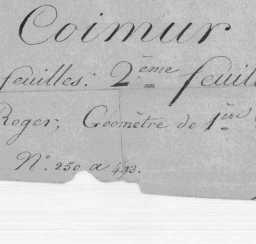 Coimur
feuilles: 2.ème feuill
Roger, Géomètre de 1.ère
N.º 250 a 493.